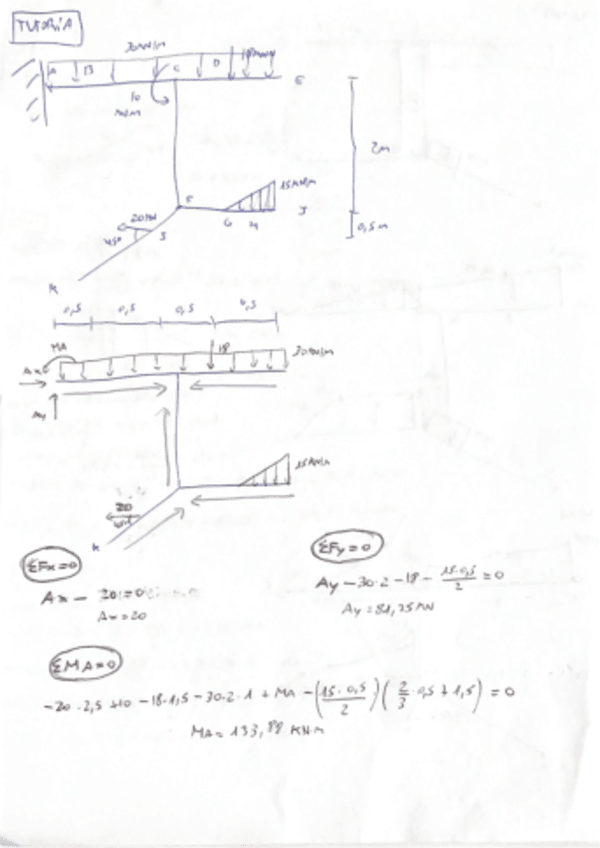 TUTORIA
30 kN/m
A B C D 18 kN E
10
kN·m
2m
15 kN/m
F
20 kN G H J
45° I
0,5m
K
0,5 0,5 0,5 0,5
MA 18 30 kN/m
Ax
Ay
15 kN/m
20
45°
K
ΣFx=0
Ax - 20 = 0
Ax = 20
ΣFy=0
Ay - 30·2 - 18 - 15·0,5/2 = 0
Ay = 81,75 kN
ΣMA=0
-20·2,5 + 10 - 18·1,5 - 30·2·1 + MA - (15·0,5/2)(2/3·0,5 + 1,5) = 0
MA = 133,88 kN·m